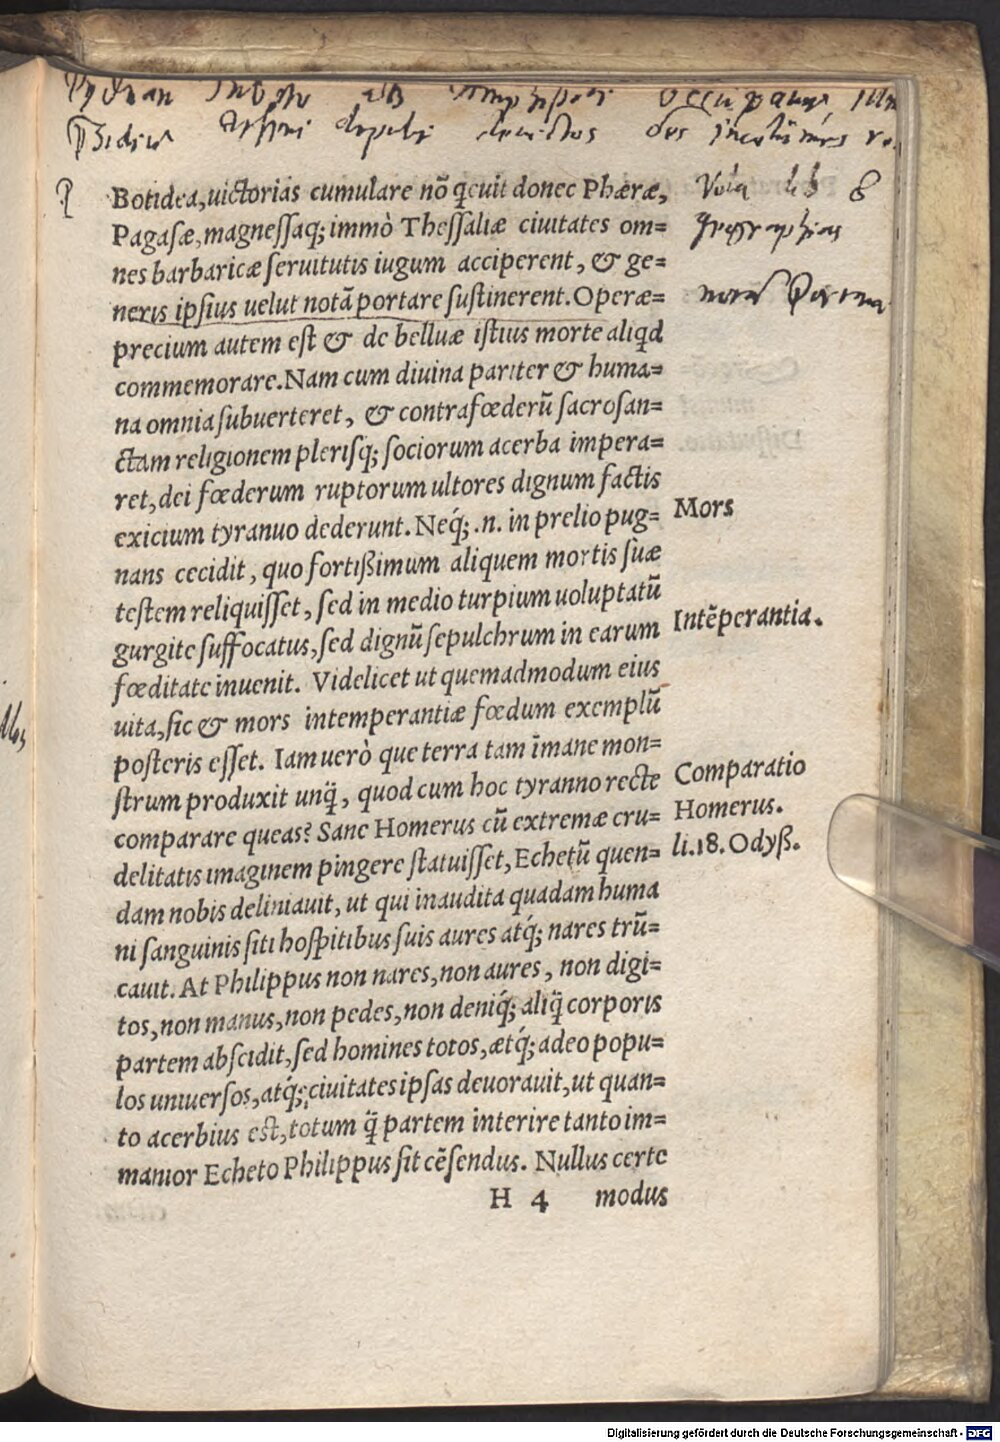 Botidea, uictorias cumulare nõ q̃cuit donec Phæræ,
Pagasæ, magnessaq́; immò Thessaliæ ciuitates om=
nes barbaricæ seruitutis iugum acciperent, & ge=
neris ipsius uelut notã portare sustinerent. Operæ=
precium autem est & de belluæ istius morte aliqd
commemorare. Nam cum diuina pariter & huma=
na omnia subuerteret, & contra fœderũ sacrosan=
ctam religionem plerisq́; sociorum acerba impera=
ret, dei fœderum ruptorum ultores dignum factis
exicium tyranuo dederunt. Neq́; .n. in prelio pug=
nans cecidit, quo fortißimum aliquem mortis suæ
testem reliquisset, sed in medio turpium uoluptatũ
gurgite suffocatus, sed dignũ sepulchrum in earum
fœditate inuenit. Videlicet ut quemadmodum eius
uita, sic & mors intemperantiæ fœdum exemplũ
posteris esset. Iam uerò que terra tam ĩmane mon=
strum produxit unq̃, quod cum hoc tyranno recte
comparare queas? Sanc Homerus cũ extremæ cru=
delitatis imaginem pingere statuisset, Echetũ quen=
dam nobis deliniauit, ut qui inaudita quadam huma
ni sanguinis siti hospitibus suis aures atq́; nares trũ=
cauit. At Philippus non nares, non aures, non digi=
tos, non manus, non pedes, non deniq́; aliq̃ corporis
partem abscidit, sed homines totos, ætq́; adeo popu=
los uniuersos, atq́; ciuitates ipsas deuorauit, ut quan=
to acerbius est, totum q̃ partem interire tanto im=
manior Echeto Philippus sit cẽsendus. Nullus certe
H 4 modus
Mors
Intẽperantia.
Comparatio
Homerus.
li.18. Odyß.
Digitalisierung gefördert durch die Deutsche Forschungsgemeinschaft - DFG